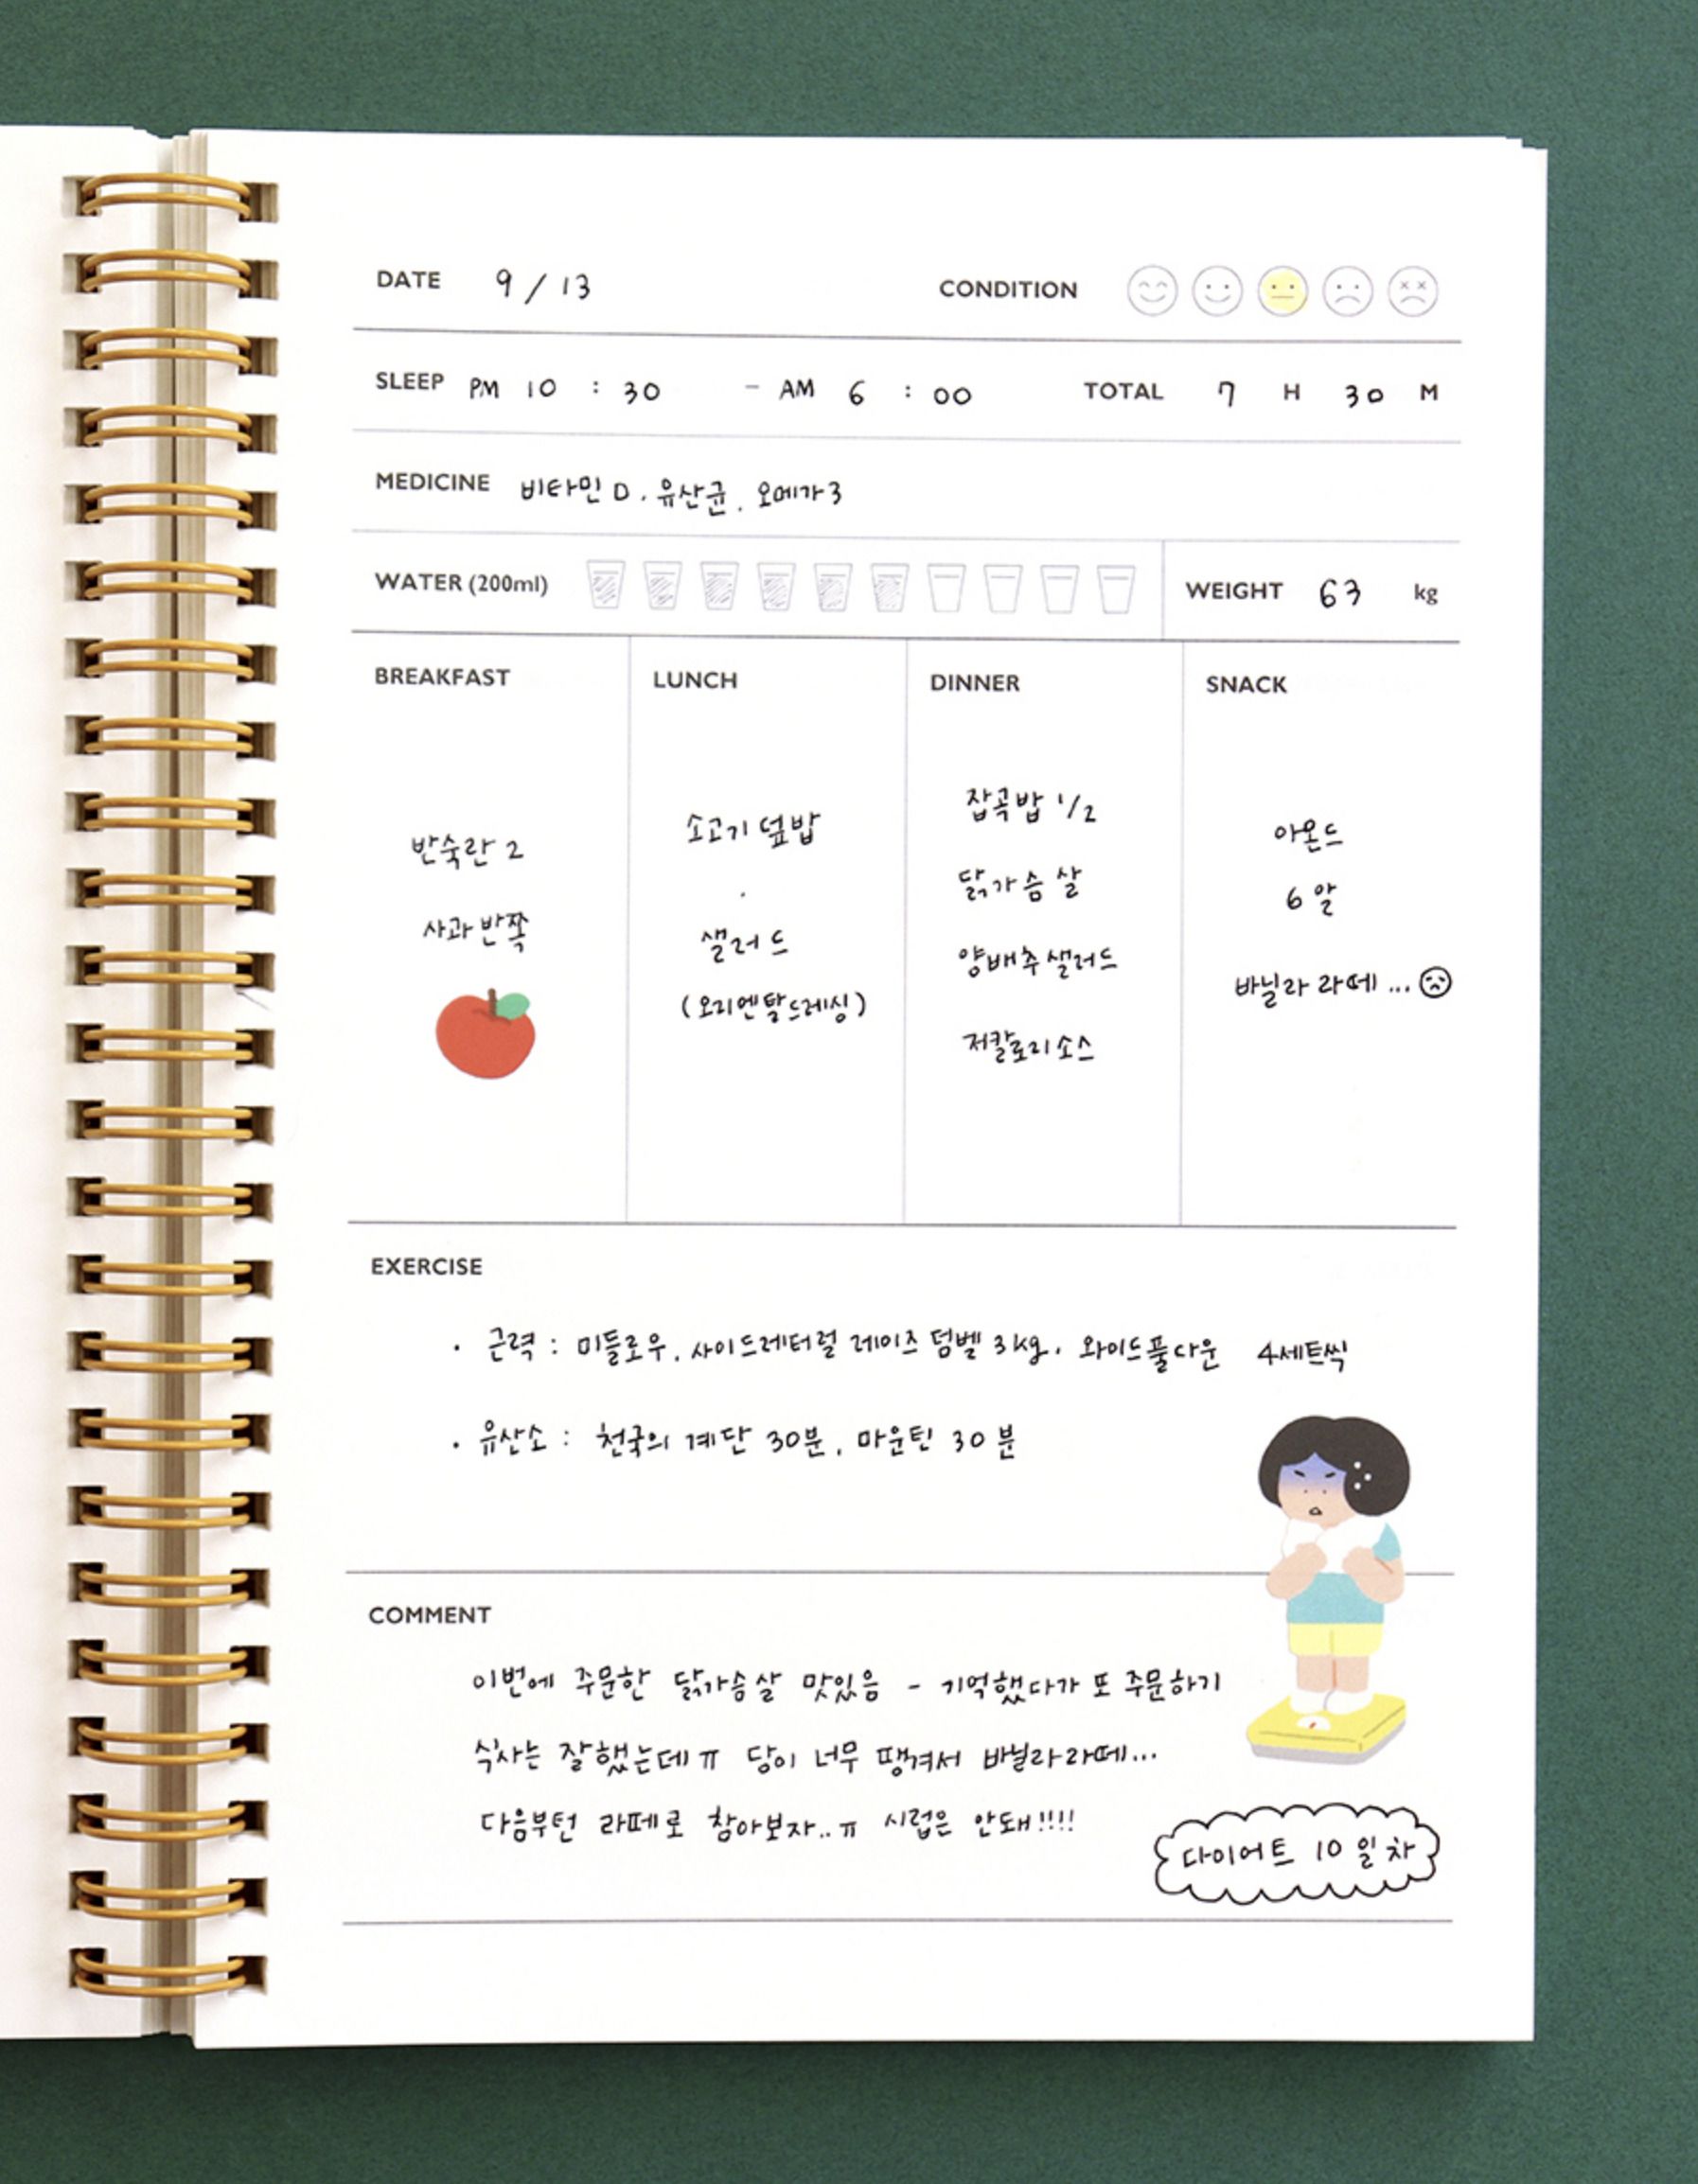 DATE 9 / 13 CONDITION
SLEEP PM 10 : 30 - AM 6 : 00 TOTAL 7 H 30 M
MEDICINE 비타민 D. 유산균. 오메가3
WATER (200ml) WEIGHT 63 kg
BREAKFAST
반숙란 2
사과 반쪽
LUNCH
소고기 덮밥
샐러드
(오리엔탈드레싱)
DINNER
잡곡밥 1/2
닭가슴살
양배추샐러드
저칼로리소스
SNACK
아몬드
6알
바닐라 라떼 ...
EXERCISE
· 근력 : 미들로우. 사이드레터럴 레이즈 덤벨 3kg. 와이드풀다운 4세트씩
· 유산소 : 천국의 계단 30분. 마운틴 30분
COMMENT
이번에 주문한 닭가슴살 맛있음 - 기억했다가 또 주문하기
식사는 잘했는데ㅠ 당이 너무 땡겨서 바닐라라떼...
다음부턴 라떼로 참아보자..ㅠ 시럽은 안돼!!!!
다이어트 10일차